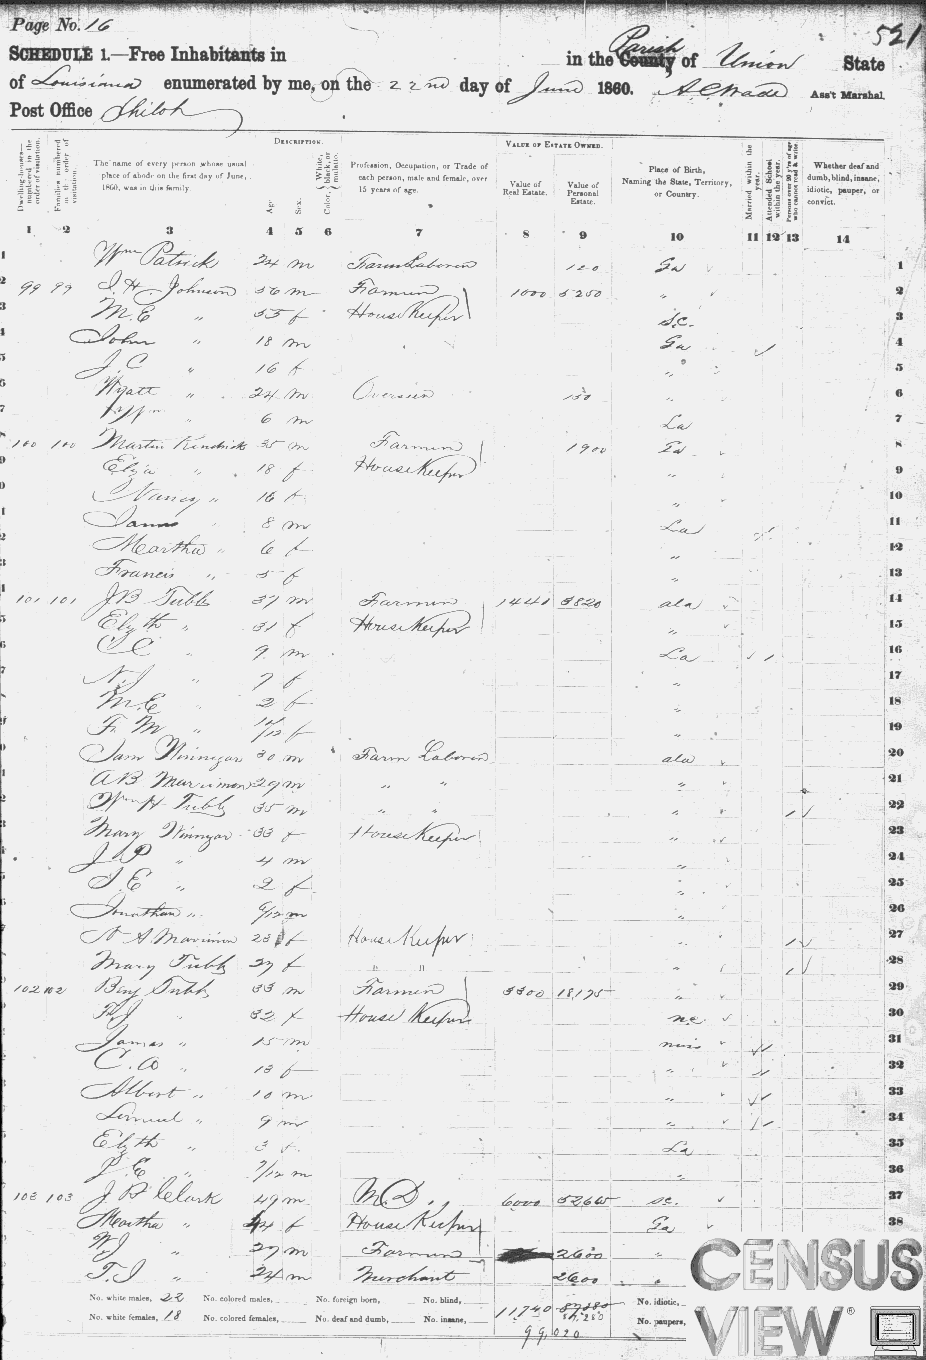 Page No. 16
521
SCHEDULE 1.—Free Inhabitants in in the County Parish of Union State
of Louisiana enumerated by me, on the 22nd day of June 1860. A.C. Wade Ass't Marshal.
Post Office Shiloh
Dwelling-houses—numbered in the order of visitation.
Families numbered in the order of visitation.
The name of every person whose usual place of abode on the first day of June, 1860, was in this family.
DESCRIPTION.
Age.
Sex.
Color, { White, black, or mulatto.
Profession, Occupation, or Trade of each person, male and female, over 15 years of age.
VALUE OF ESTATE OWNED.
Value of Real Estate.
Value of Personal Estate.
Place of Birth, Naming the State, Territory, or Country.
Married within the year.
Attended School within the year.
Persons over 20 y'rs of age who cannot read & write.
Whether deaf and dumb, blind, insane, idiotic, pauper, or convict.
1 2 3 4 5 6 7 8 9 10 11 12 13 14
1 Wm Patrick 24 m Farm Laborer 120 Ga 1
2 99 99 J. H. Johnson 56 m Farmer 1000 5250 " 2
3 M. E " 55 f House Keeper S.C. 3
4 John " 18 m Ga 4
5 J. C " 16 f " 5
6 Wyatt " 24 m Overseer 150 " 6
7 " 6 m La 7
8 100 100 Martin Kendrick 35 m Farmer 1900 Ga 8
9 Eliza " 18 f House Keeper " 9
0 Nancy " 16 f " 10
1 James " 8 m La 11
2 Martha " 6 f " 12
3 Francis " 5 f " 13
4 101 101 J B Tubb 37 m Farmer 1440 3820 ala 14
5 Elizth " 31 f House Keeper " 15
6 C C " 9 m La 16
7 N. J " 7 f " 17
8 M. E " 2 f " 18
9 F. M " 1/12 f " 19
0 Sam Winnegar 30 m Farm Laborer ala 20
1 A B Marrimon 29 m " " " 21
2 Wm H Tubb 35 m " " " 22
3 Mary Winnegar 33 f House Keeper " 23
J P " 4 m " 24
S. E " 2 f " 25
Jonathan " 9/12 m " 26
N A Marrimon 23 f House Keeper " 27
Mary Tubb 27 f " " " 28
102 102 Benj Tubb 33 m Farmer 3300 18,175 " 29
" 32 f House Keeper nc 30
James " 15 m miss 31
C. A " 13 f " 32
Albert " 10 m " 33
Lemuel " 9 m " 34
Elizth " 3 f La 35
J. E " 7/12 m " 36
103 103 J B Clark 49 m M.D. 6000 52665 SC. 37
Martha " 44 f House Keeper Ga 38
W. J " 27 m Farmer 2600 "
T. J " 24 m Merchant 2600 "
No. white males, 22 No. colored males, No. foreign born, No. blind, 11740 No. idiotic,
No. white females, 18 No. colored females, No. deaf and dumb, No. insane, No. paupers,
99,020
CENSUS
VIEW®